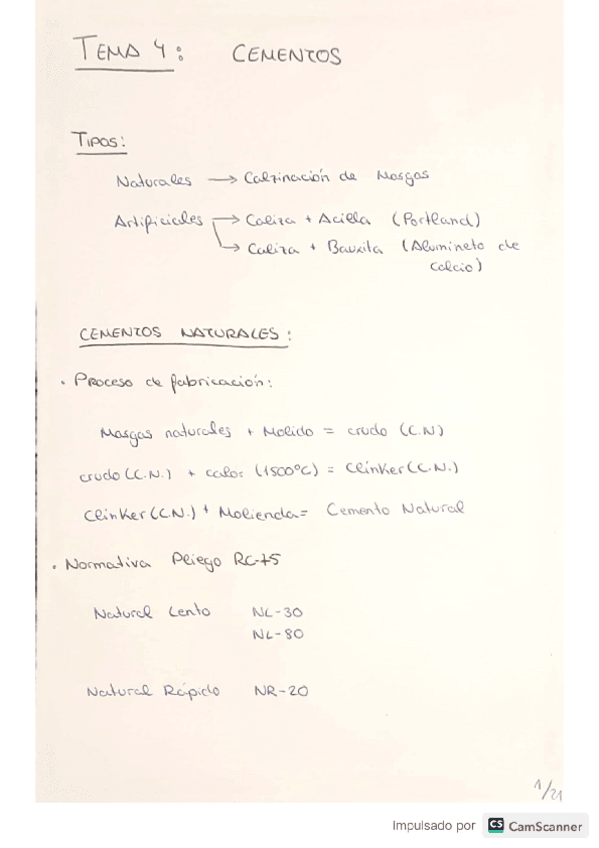 TEMA 4: CEMENTOS
TIPOS:
Naturales → Calzinación de Margas
Artificiales → Caliza + Arcilla (Portland)
↳ Caliza + Bauxita (Aluminato de
Calcio)
CEMENTOS NATURALES:
• Proceso de fabricación:
Margas naturales + Molido = crudo (C.N)
crudo (C.N.) + calor (1500ºC) = Clinker (C.N.)
Clinker (C.N.) + Molienda = Cemento Natural
• Normativa Pliego RC-75
Natural Lento NL-30
NL-80
Natural Rápido NR-20
1/21
Impulsado por CS CamScanner